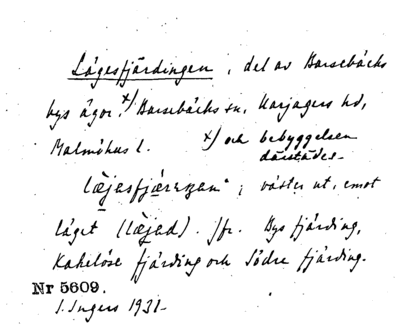 Lägesfjärdingen, del av Barsebäcks
bys ägor, x) Barsebäcks sn, Harjagers hd,
Malmöhus l. x) och bebyggelsen
därstädes.
väster ut, emot
läget (læjad). Jfr. Bys fjärding,
Kakelöse fjärding och Södre fjärding.
Nr 5609.
I. Ingers 1931.